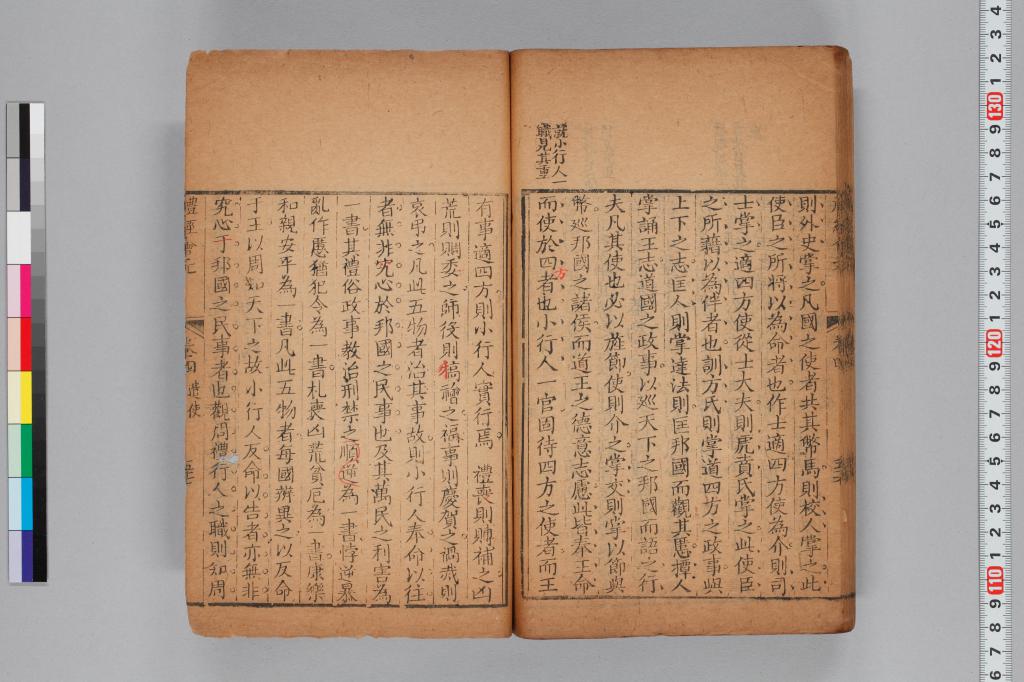 則外史掌之凡國之使者共其幣馬則校人掌之此
使臣之所將以為命者也作士適四方使為介則司
士掌之適四方使從士大夫則虎賁氏掌之此使臣
之所藉以為伴者也訓方氏則掌道四方之政事與
上下之志匡人則掌達法則匡邦國而觀其慝撢人
掌誦王志道國之政事以巡天下之邦國而語之行
夫凡其使也必以旌節使則介之掌交則掌以節與
幣巡邦國之諸侯而道王之德意志慮此皆奉王命
而使於四方者也小行人一官固待四方之使者而王
說小行人一
職見其重
有事適四方則小行人實行焉 禮喪則賻補之凶
荒則賙委之師役則犒禬之福事則慶賀之禍烖則
哀弔之凡此五物者治其事故則小行人奉命以往
者無非究心於邦國之民事也及其萬民之利害為
一書其禮俗政事教治刑禁之順逆為一書悖逆暴
亂作慝猶犯令為一書札喪凶荒貧厄為一書康樂
和親安平為一書凡此五物者每國辨異之以反命
于王以周知天下之故小行人反命以告者亦無非
究心于邦國之民事者也觀周禮行人之職則知周
禮經會元 卷四 遣使